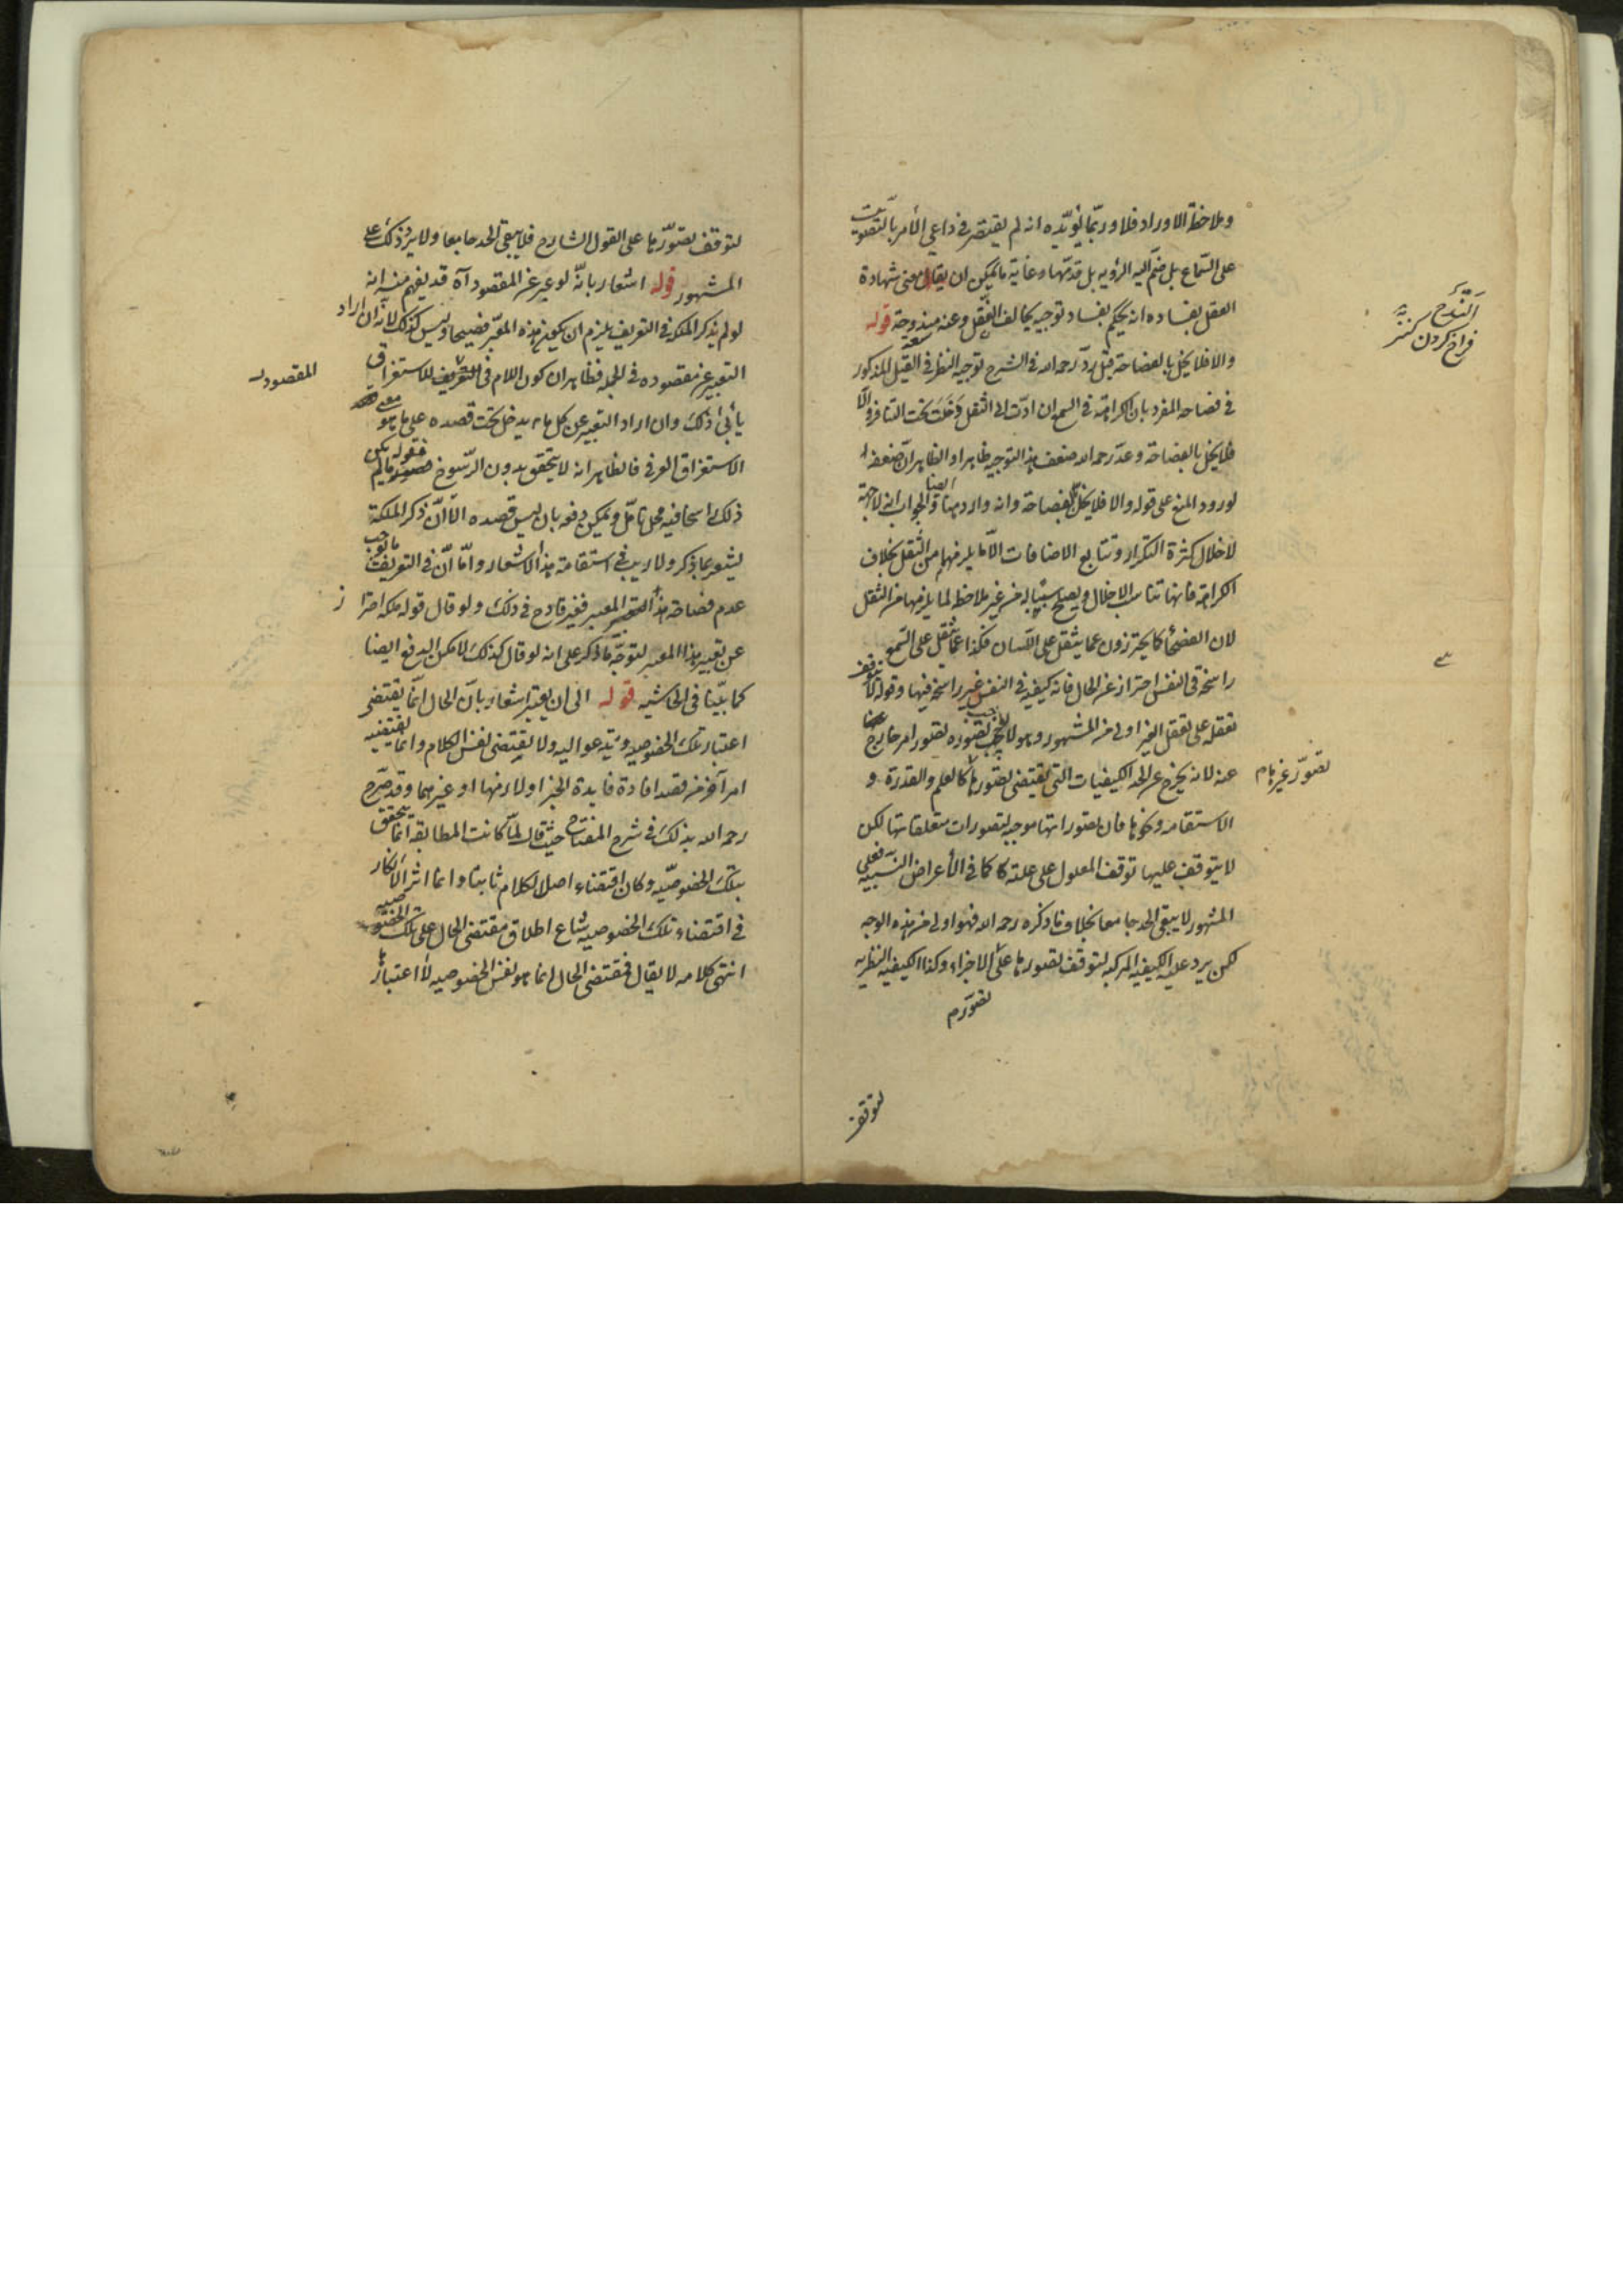 وملاحظة الاوراد فلا وربما يؤيده انه لم يقتصر في داعي الأمر بالتصويت
على السماع بل ضم اليه الرؤية بل قدمها وغاية ما يمكن ان يقال معنى شهادة
العقل بفساده انه يحكم بفساد توجيه يخالف النقل وعنه مندوحة قوله
والا فلا يخل بالفصاحة قيل رد رحمه الله في الشرح توجيه النظر في القيل المذكور
في فصاحة المفرد بان الكراهة في السمع ان ادت الى الثقل دخلت تحت التنافر والا
فلا يخل بالفصاحة وعد رحمه الله ضعف هذا التوجيه ظاهرا والظاهر ان ضعفه
لورود المنع على قوله والا فلا يخل بالفصاحة وانه وارد هنا ايضا والجواب انه لا جهة
لاخلال كثرة التكرار وتتابع الاضافات الا ما يلزمهما من الثقل بخلاف
الكراهة فانها تناسب الاخلال ويصلح سببا له من غير ملاحظة لما يلزمها من الثقل
لان الفصحاء كما يحترزون عما يثقل على اللسان فكذا عما يثقل على السمع
راسخة في النفس احتراز عن الحال فانه كيفية في النفس غير راسخة فيها وقوله لا يتوقف
تعقله على تعقل الغير اولى من المشهور وهو لا يوجب تصوره تصور امر خارج
عنه لانه يخرج عن الحد الكيفيات التي يقتضي تصورها كالعلم والقدرة و
تصور غيرها م
الاستقامة ونحوها فان تصوراتها موجبة لتصورات متعلقاتها لكن
لا يتوقف عليها توقف المعلول على علته كما في الأعراض النسبية فعلى
المشهور لا يبقى الحد جامعا بخلاف ما ذكره رحمه الله فهو اولى من هذه الوجه
لكن يرد عليه الكيفية المركبة لتوقف تصورها على الاجزاء وكذا الكيفية النظرية
تصورم
لتوقف
فراخ كردن
لتوقف تصورها على القول الشارح فلا يبقى الحد جامعا ولا يرد ذلك على
المشهور قوله اشعار بانه لو عبر عن المقصود آه قد يفهم منه انه
لو لم يذكر الملكة في التعريف يلزم ان يكون هذه المعبر فصيحا وليس كذلك لانه ان اراد
التعبير عن مقصوده في الجملة فظاهر ان كون اللام في المقصود للاستغراق
المقصود
يأبى ذلك وان اراد التعبير عن كل ما يدخل تحت قصده على ما هو معنى
الاستغراق العرفي فالظاهر انه لا يتحقق بدون الرسوخ فقوله ما لم يكن
ذلك راسخا فيه محل تأمل ويمكن دفعه بان ليس قصده الا ان ذكر الملكة
ليشعر بما ذكر ولا ريب في استقامة هذا الاشعار واما ان في التعريف ما يوجب
عدم فصاحة هذا المعبر فغير قادح في ذلك ولو قال قوله ملكة احترا ز
عن تعبير هذا المعبر لتوجه ما ذكر على انه لو قال كذلك لامكن الدفع ايضا
كما بينا في الحاشية قوله الى ان يعتبر اشعار بان الحال انما يقتضي
اعتبار تلك الخصوصية ويدعو اليه ولا يقتضي نفس الكلام وانما يقتضيه
امر آخر من قصد افادة فائدة الخبر او لازمها او غيرهما وقد صرح
رحمه الله بذلك في شرح المفتاح حيث قال لما كانت المطابقة انما يتحقق
بتلك الخصوصية وكان اقتضاء اصل الكلام ثابتا وانما اثر الانكار
في اقتضاء تلك الخصوصية شاع اطلاق مقتضى الحال على تلك الخصوصية
انتهى كلامه لا يقال فمقتضى الحال انما هو نفس الخصوصية لا اعتبارها